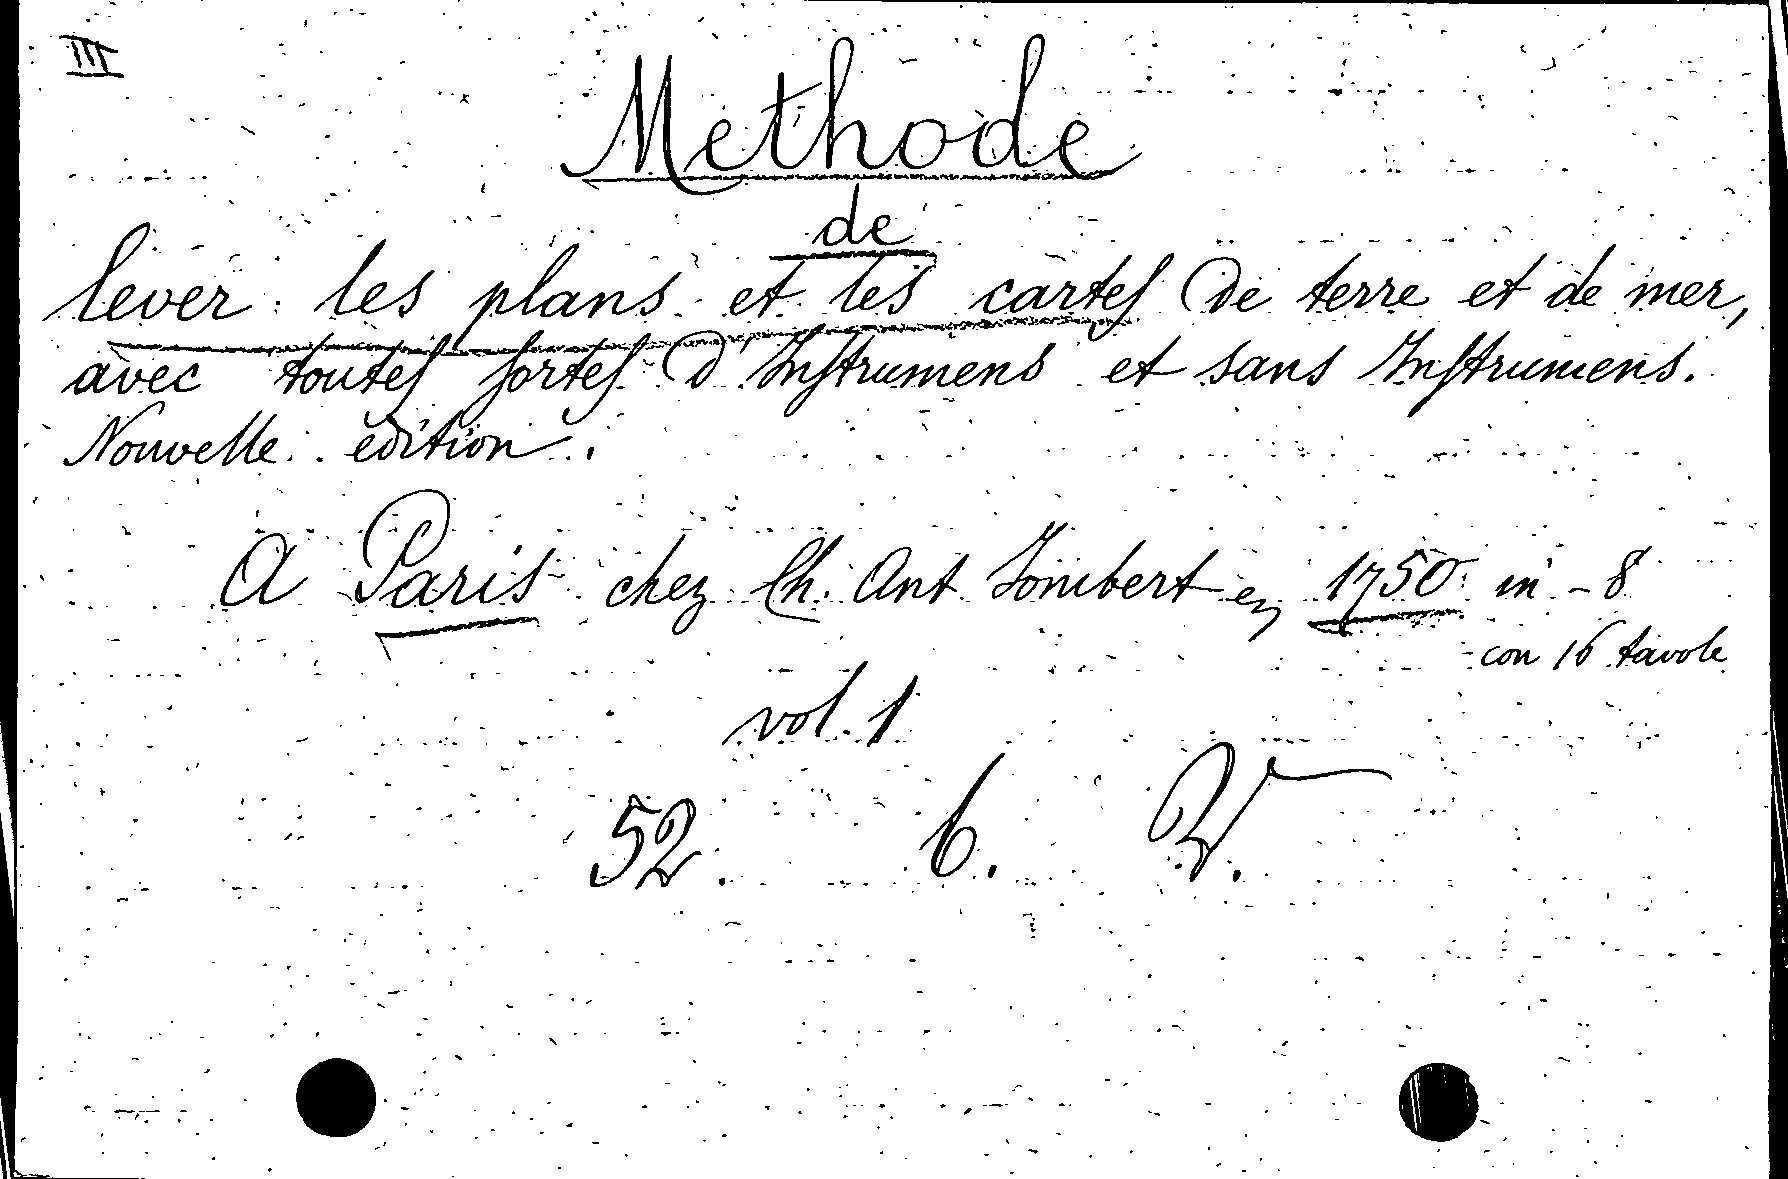 III
Methode
de
lever les plans et les cartes de terre et de mer,
avec toutes sortes d'Instrumens et sans Instrumens.
Nouvelle edition.
A Paris chez Ch. Ant Jombert en 1750 in - 8
con 16 tavole
vol. 1
52. 6.